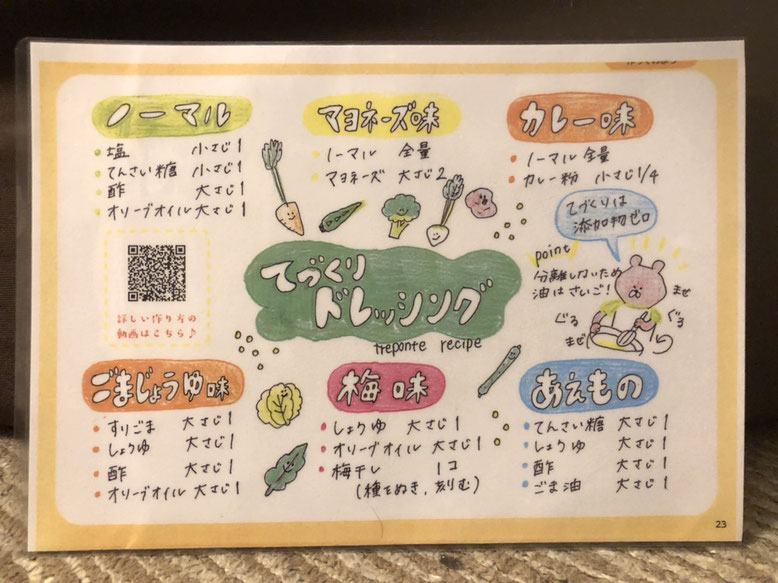 ノーマル
塩 小さじ1
てんさい糖 小さじ1
酢 大さじ1
オリーブオイル 大さじ1
マヨネーズ味
ノーマル 全量
マヨネーズ 大さじ2
カレー味
ノーマル 全量
カレー粉 小さじ1/4
てづくりは
添加物ゼロ
point
分離しないため
油はさいご!
まぜ
ぐる
ぐる
まぜ
詳しい作り方の
動画はこちら♪
てづくり
ドレッシング
treponte recipe
ごまじょうゆ味
すりごま 大さじ1
しょうゆ 大さじ1
酢 大さじ1
オリーブオイル 大さじ1
梅味
しょうゆ 大さじ1
オリーブオイル 大さじ1
梅干し 1コ
(種をぬき、刻む)
あえもの
てんさい糖 大さじ1
しょうゆ 大さじ1
酢 大さじ1
ごま油 大さじ1
23